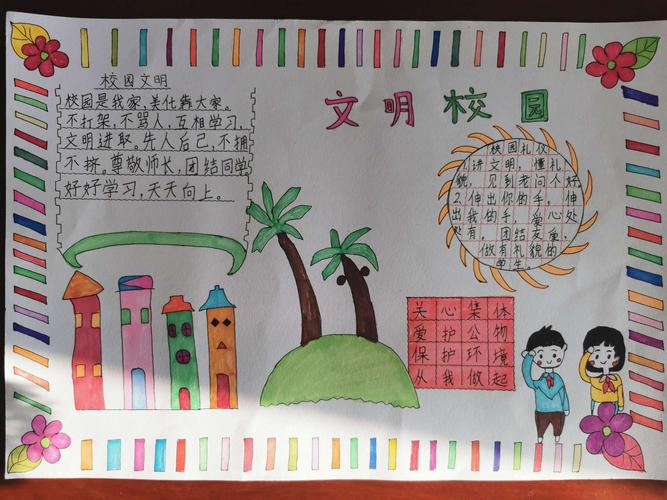 文明校园
校园文明
校园是我家,美化靠大家。
不打架,不骂人,互相学习,
文明进取。先人后己,不拥
不挤。尊敬师长,团结同学,
好好学习,天天向上。
校园礼仪
1.讲文明,懂礼
貌,见到老问个好
2.伸出你的手,伸
出我的手,爱心处
处有,团结友爱,
做有礼貌的
学生。
关心集体
爱护公物
保护环境
从我做起